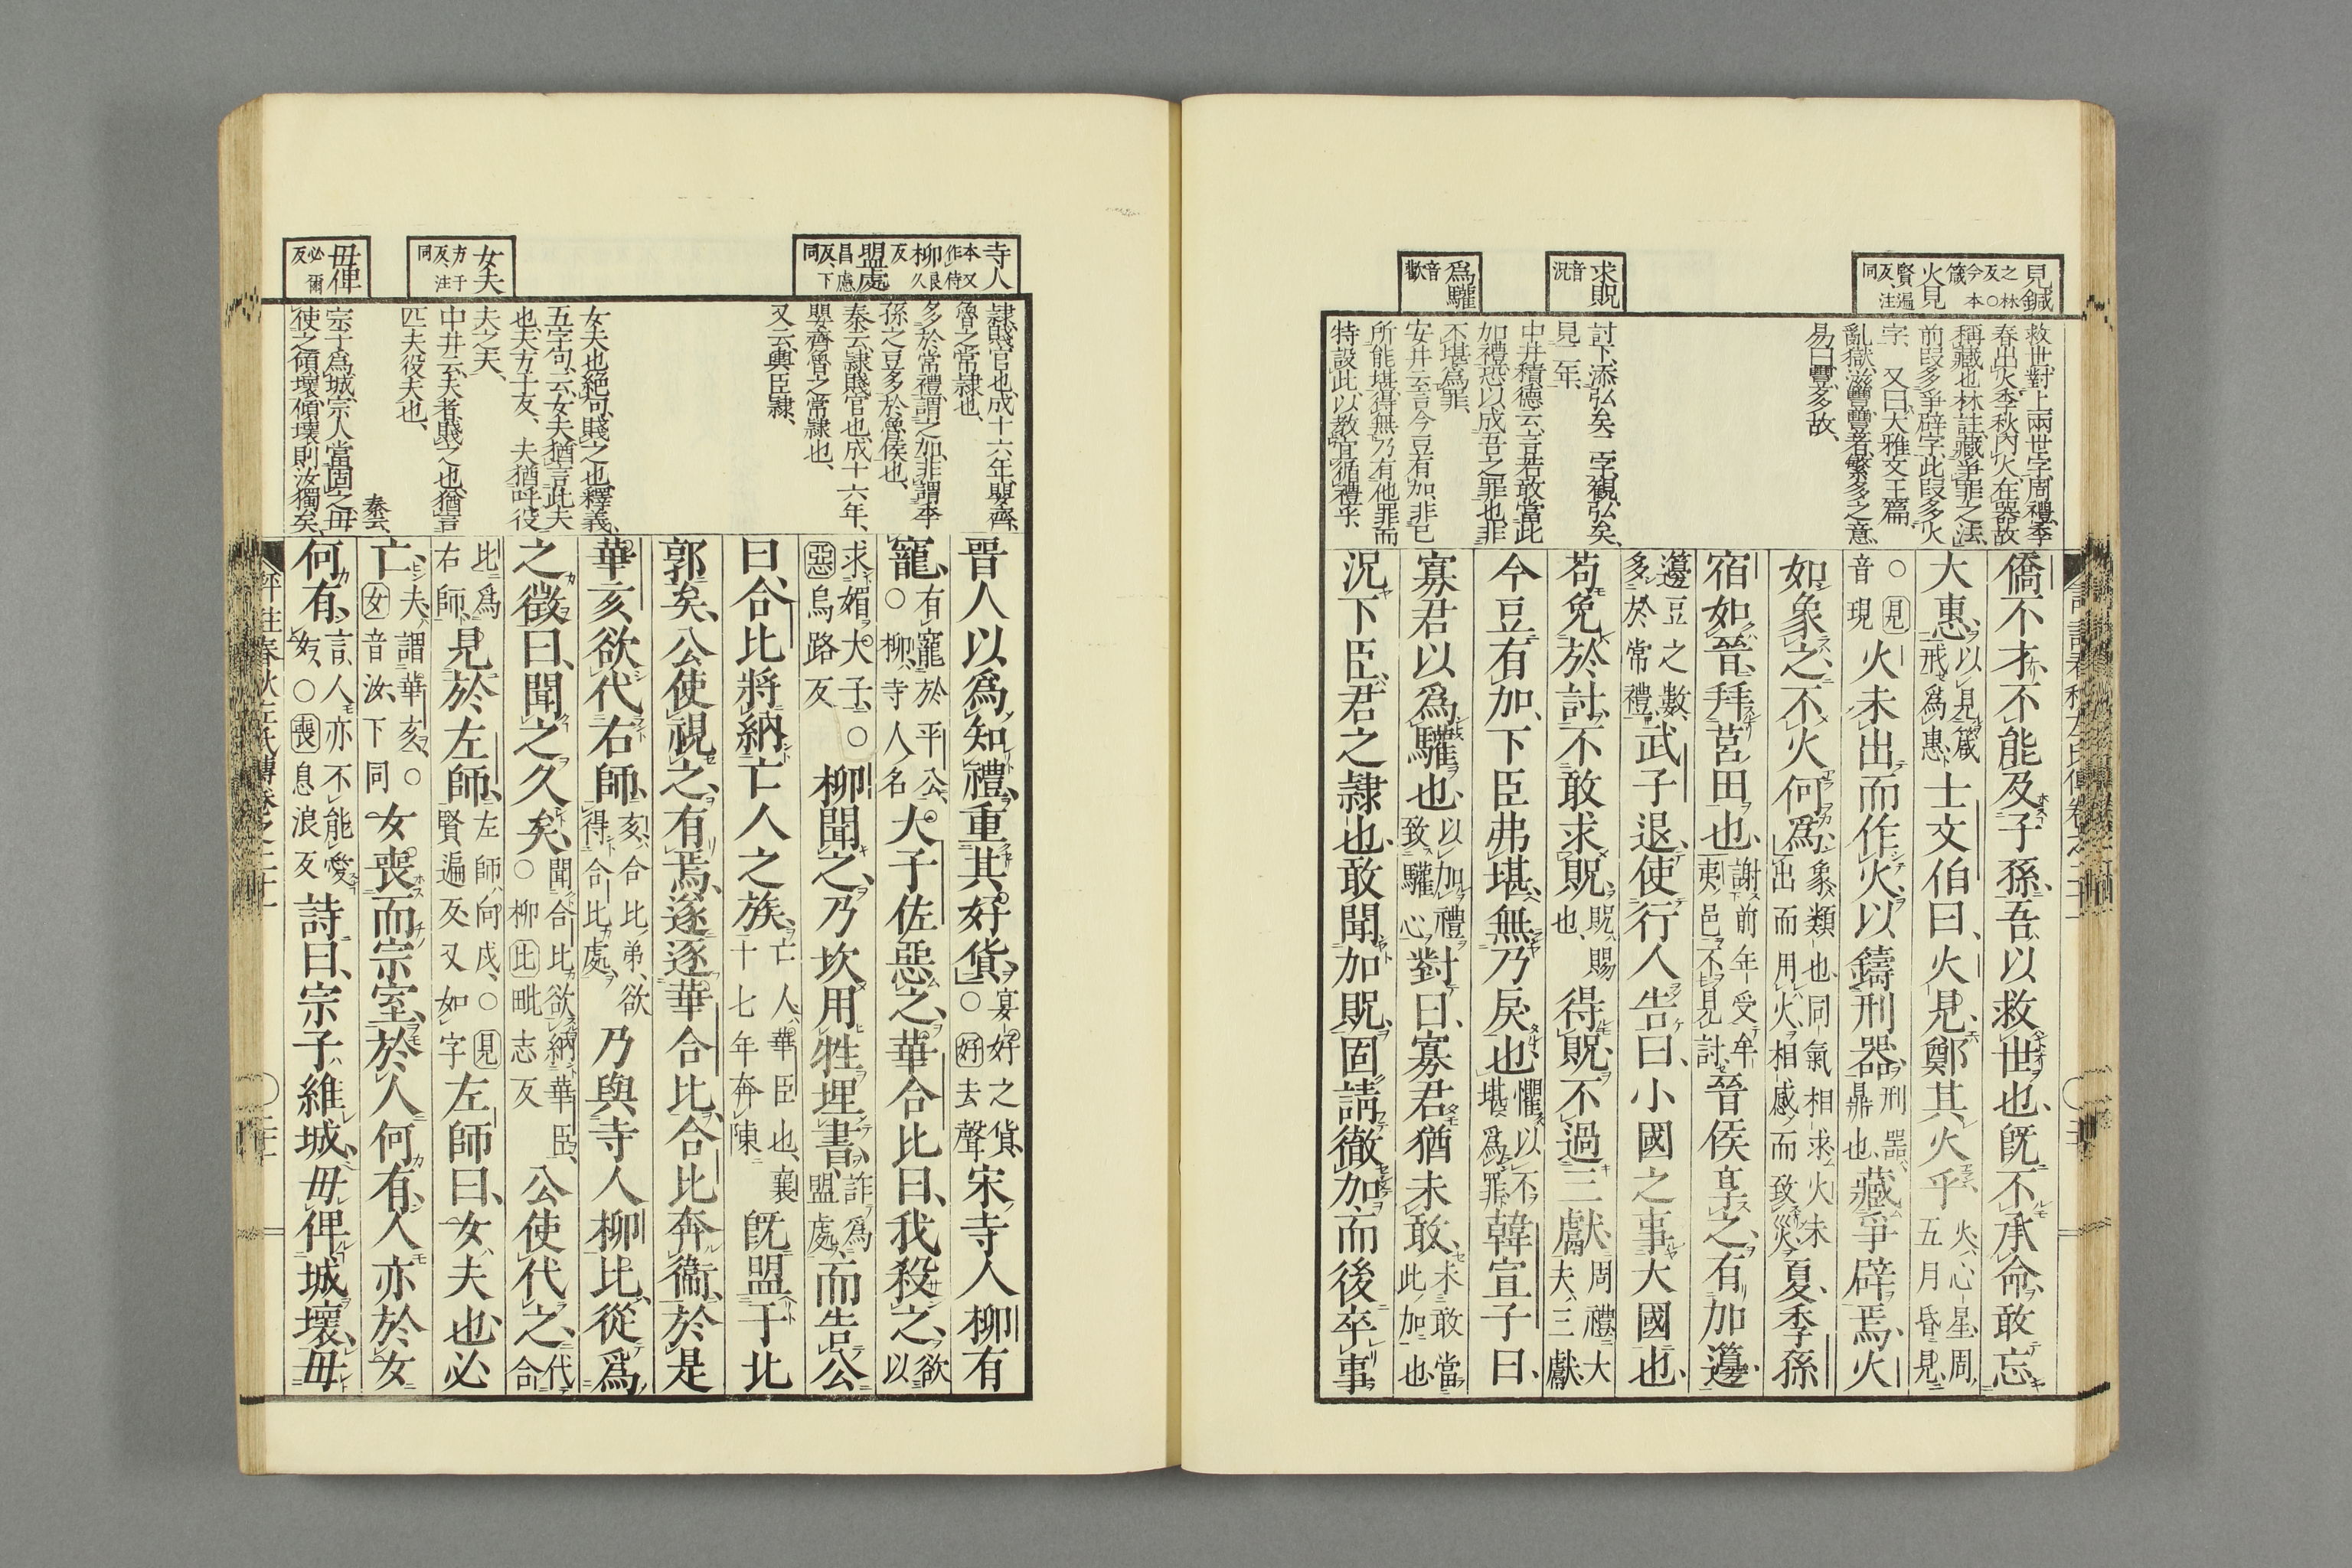 見鍼
之林
反○
今本
箴
火見
賢遍
反、注
同
求貺
音況
爲驩
音歡
救世對上兩世字、周禮、季
春出火、季秋內火、在器故
稱藏也、林註、藏爭罪之法、
前段多爭辟字、此段多火
字、又曰、大雅文王篇、
亂獄滋豐、豐者、繁多之意、
易曰、豐多故、
討下添弘矣二字、觀弘矣、
見二年、
中井積德云、言若敢當此
如禮、恐以成吾之罪也、非
不堪爲罪、
安井云、言今豆有加、非已
所能堪、得無乃有他罪而
特設此以教宜循禮乎、
僑不才、不能及子孫、吾以救世也、既不承命、敢忘
大惠、以見箴
戒爲惠、士文伯曰、火見、鄭其火乎、火、心星、周
五月昏見、
○見
音現火未出、而作火以鑄刑器、刑器、
鼎也、藏爭辟焉、火
如象之、不火何爲、象、類也、同氣相求、火未
出而用火、相感而致災、夏、季孫
宿如晉、拜莒田也、謝前年受牟
夷邑不見討、晉侯享之、有加籩、
籩豆之數、
多於常禮、武子退、使行人告曰、小國之事大國也、
苟免於討、不敢求貺、貺、賜
也、得貺不過三獻、周禮、大
夫三獻、
今豆有加、下臣弗堪、無乃戾也、懼以不
堪爲罪、韓宣子曰、
寡君以爲驩也、以加禮
致驩心、對曰、寡君猶未敢、未敢當
此加也、
況下臣、君之隸也、敢聞加貺、固請徹加、而後卒事、
寺人
本又
作侍
柳
良久
反
盟處
昌慮
反、下
同
女夫
方于
反、注
同
毋俾
必爾
反
隸、賤官也、成十六年、嬰齊、
魯之常隸也、
多於常禮、謂之加、非謂季
孫之豆多於魯侯也、
秦云、隸、賤官也、成十六年、
嬰齊、魯之常隸也、
又云、輿臣隸、
女夫也絕句、賤之也、釋義、
五字句、云、女夫猶言此夫
也、夫方于反、夫猶呼役
夫之夫、
中井云、夫者、賤之也、猶言
匹夫役夫也、
秦云、
宗子爲城、宗人當固之、毋
使之傾壞、傾壞則汝獨矣、
晉人以爲知禮、重其好貨、宴好之貨、
○好去聲宋寺人柳有
寵、有寵於平公、
○柳、寺人名大子佐惡之、華合比曰、我殺之、欲以
求媚大子、○
惡烏路反柳聞之、乃坎用牲埋書、詐爲
盟處、而告公
曰、合比將納亡人之族、亡人、華臣也、襄
十七年奔陳既盟于北
郭矣、公使視之、有焉、遂逐華合比、合比奔衞、於是
華亥欲代右師、亥、合比弟、欲
得合比處、乃與寺人柳比、從爲
之徵曰、聞之久矣、聞合比欲納華臣、
○柳比毗志反公使代之、代合
比爲
右師、見於左師、左師、向戌、○見
賢遍反、又如字左師曰、女夫也、必
亡、夫、謂華亥、○
女音汝、下同女喪而宗室、於人何有、人亦於女
何有、言人亦不能愛
女、○喪息浪反詩曰、宗子維城、毋俾城壞、毋